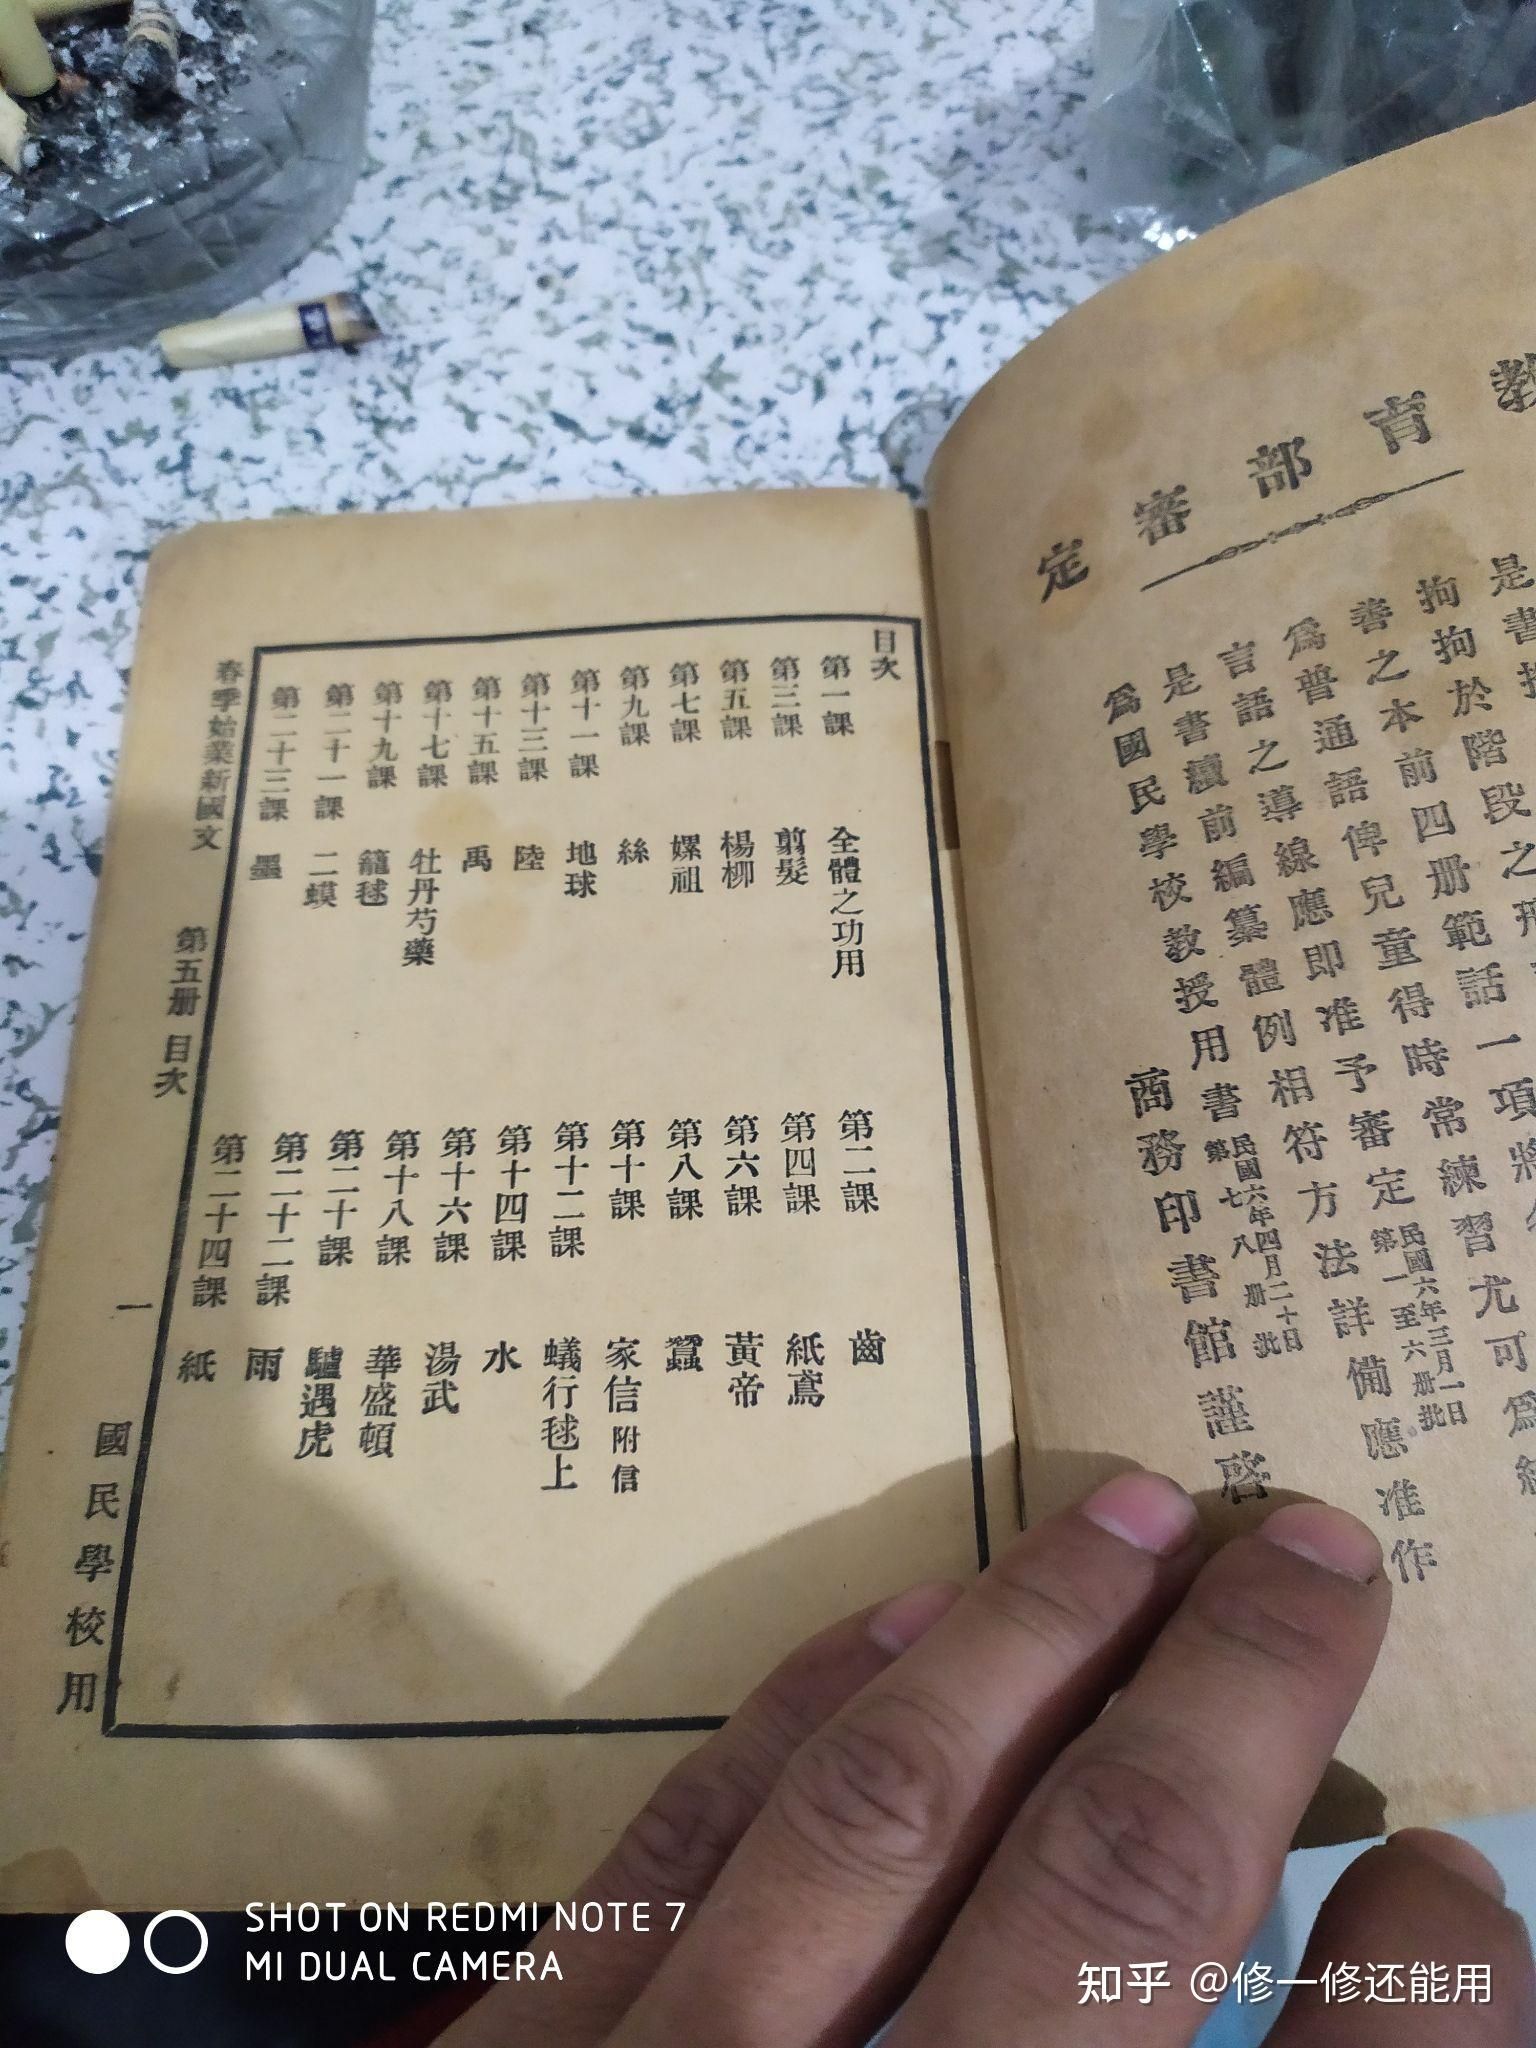 教育部審定
是書
拘拘於階段之
善之本前四册範話一項
爲普通語俾兒童得時常練習尤可爲
言語之導線應即准予審定民國六年三月一日第一至六册批
是書續前編纂體例相符方法詳備應准作
爲國民學校教授用書民國六年四月二十日第七八册批
商務印書館謹啓
目次
第一課 全體之功用 第二課 齒
第三課 剪髮 第四課 紙鳶
第五課 楊柳 第六課 黃帝
第七課 嫘祖 第八課 蠶
第九課 絲 第十課 家信附信
第十一課 地球 第十二課 蟻行毬上
第十三課 陸 第十四課 水
第十五課 禹 第十六課 湯武
第十七課 牡丹芍藥 第十八課 華盛頓
第十九課 籠毬 第二十課 驢遇虎
第二十一課 二蟆 第二十二課 雨
第二十三課 墨 第二十四課 紙
春季始業新國文 第五册 目次 一 國民學校用
SHOT ON REDMI NOTE 7
MI DUAL CAMERA
知乎 @修一修还能用